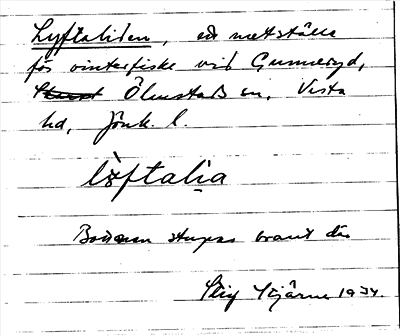 Lyftaliden, en nottställe
för vinterfiske vid Gunneryd,
Ölmstads sn, Vista
hd, Jönk. l.
lỳftalia
Bottnen stupar brant där
Stig Stjärne 1934.